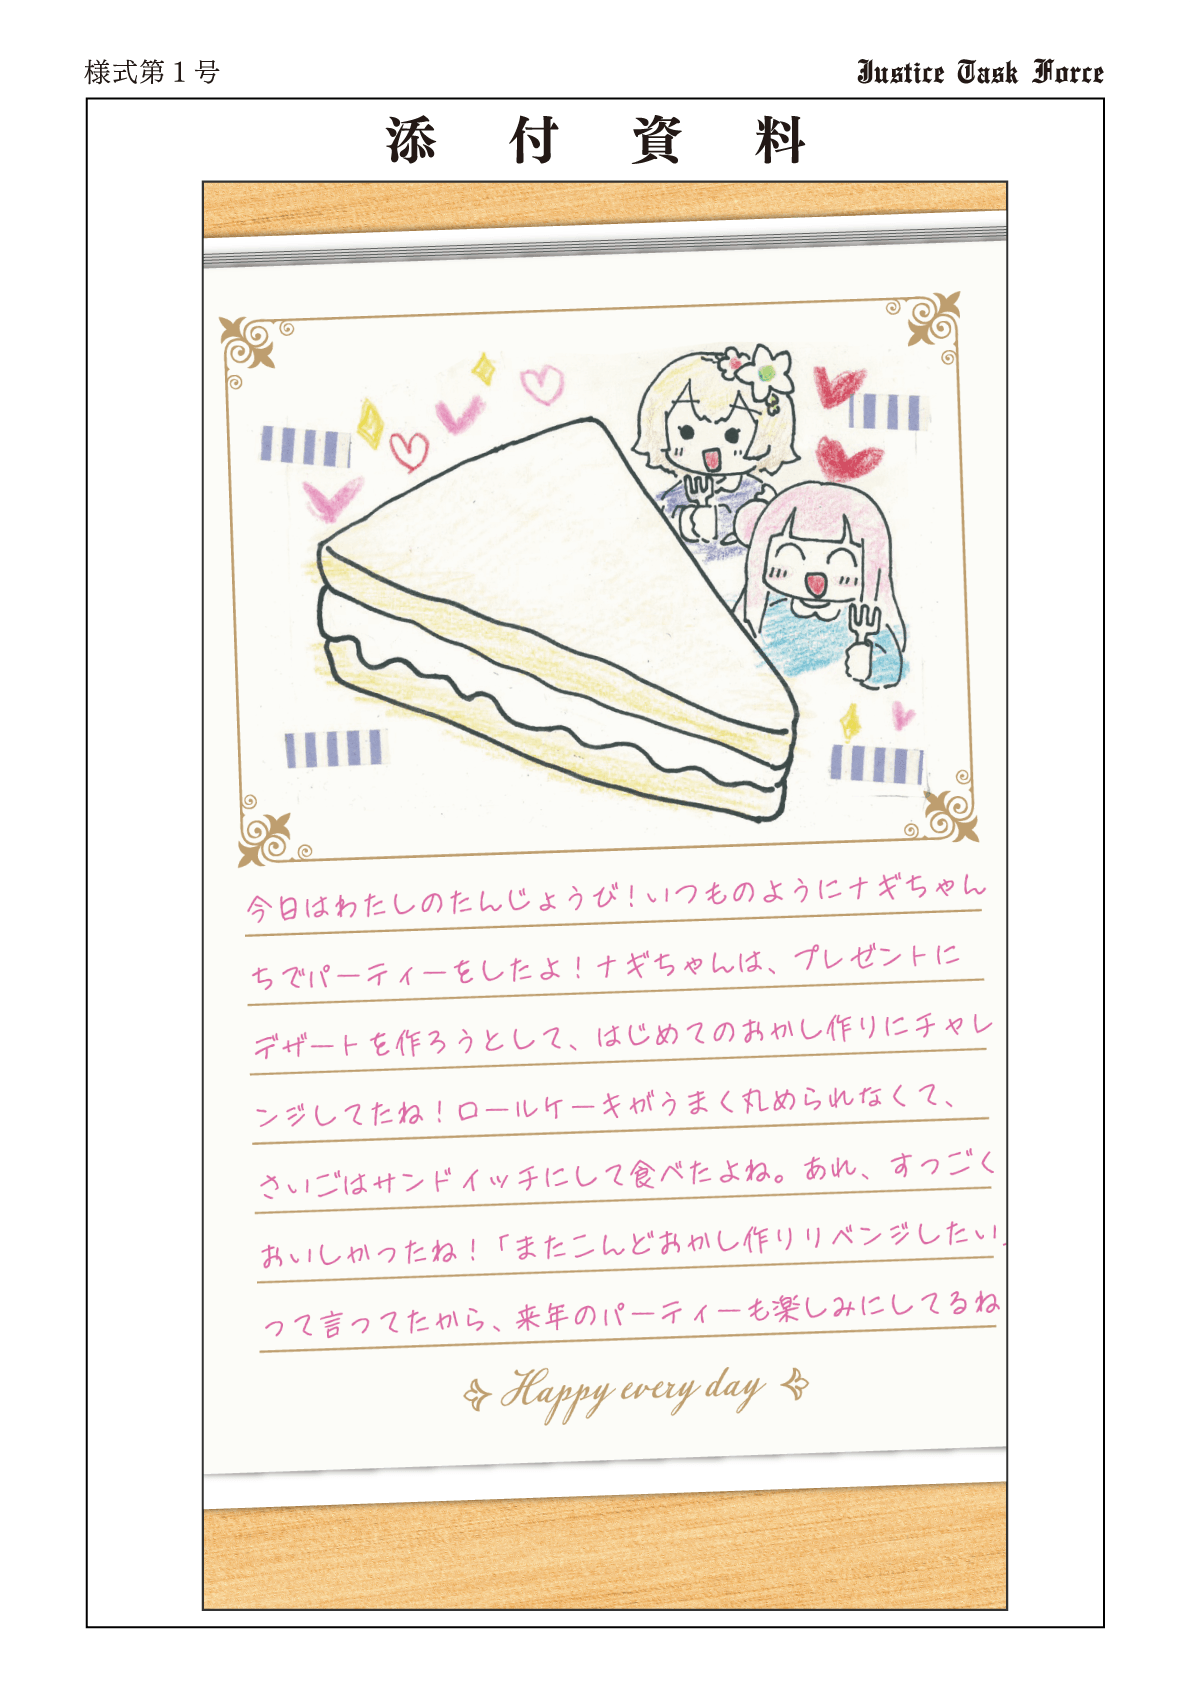 様式第1号
Justice Task Force
添付資料
今日はわたしのたんじょうび！いつものようにナギちゃん
ちでパーティーをしたよ！ナギちゃんは、プレゼントに
デザートを作ろうとして、はじめてのおかし作りにチャレ
ンジしてたね！ロールケーキがうまく丸められなくて、
さいごはサンドイッチにして食べたよね。あれ、すっごく
おいしかったね！「またこんどおかし作りリベンジしたい」
って言ってたから、来年のパーティーも楽しみにしてるね
Happy every day